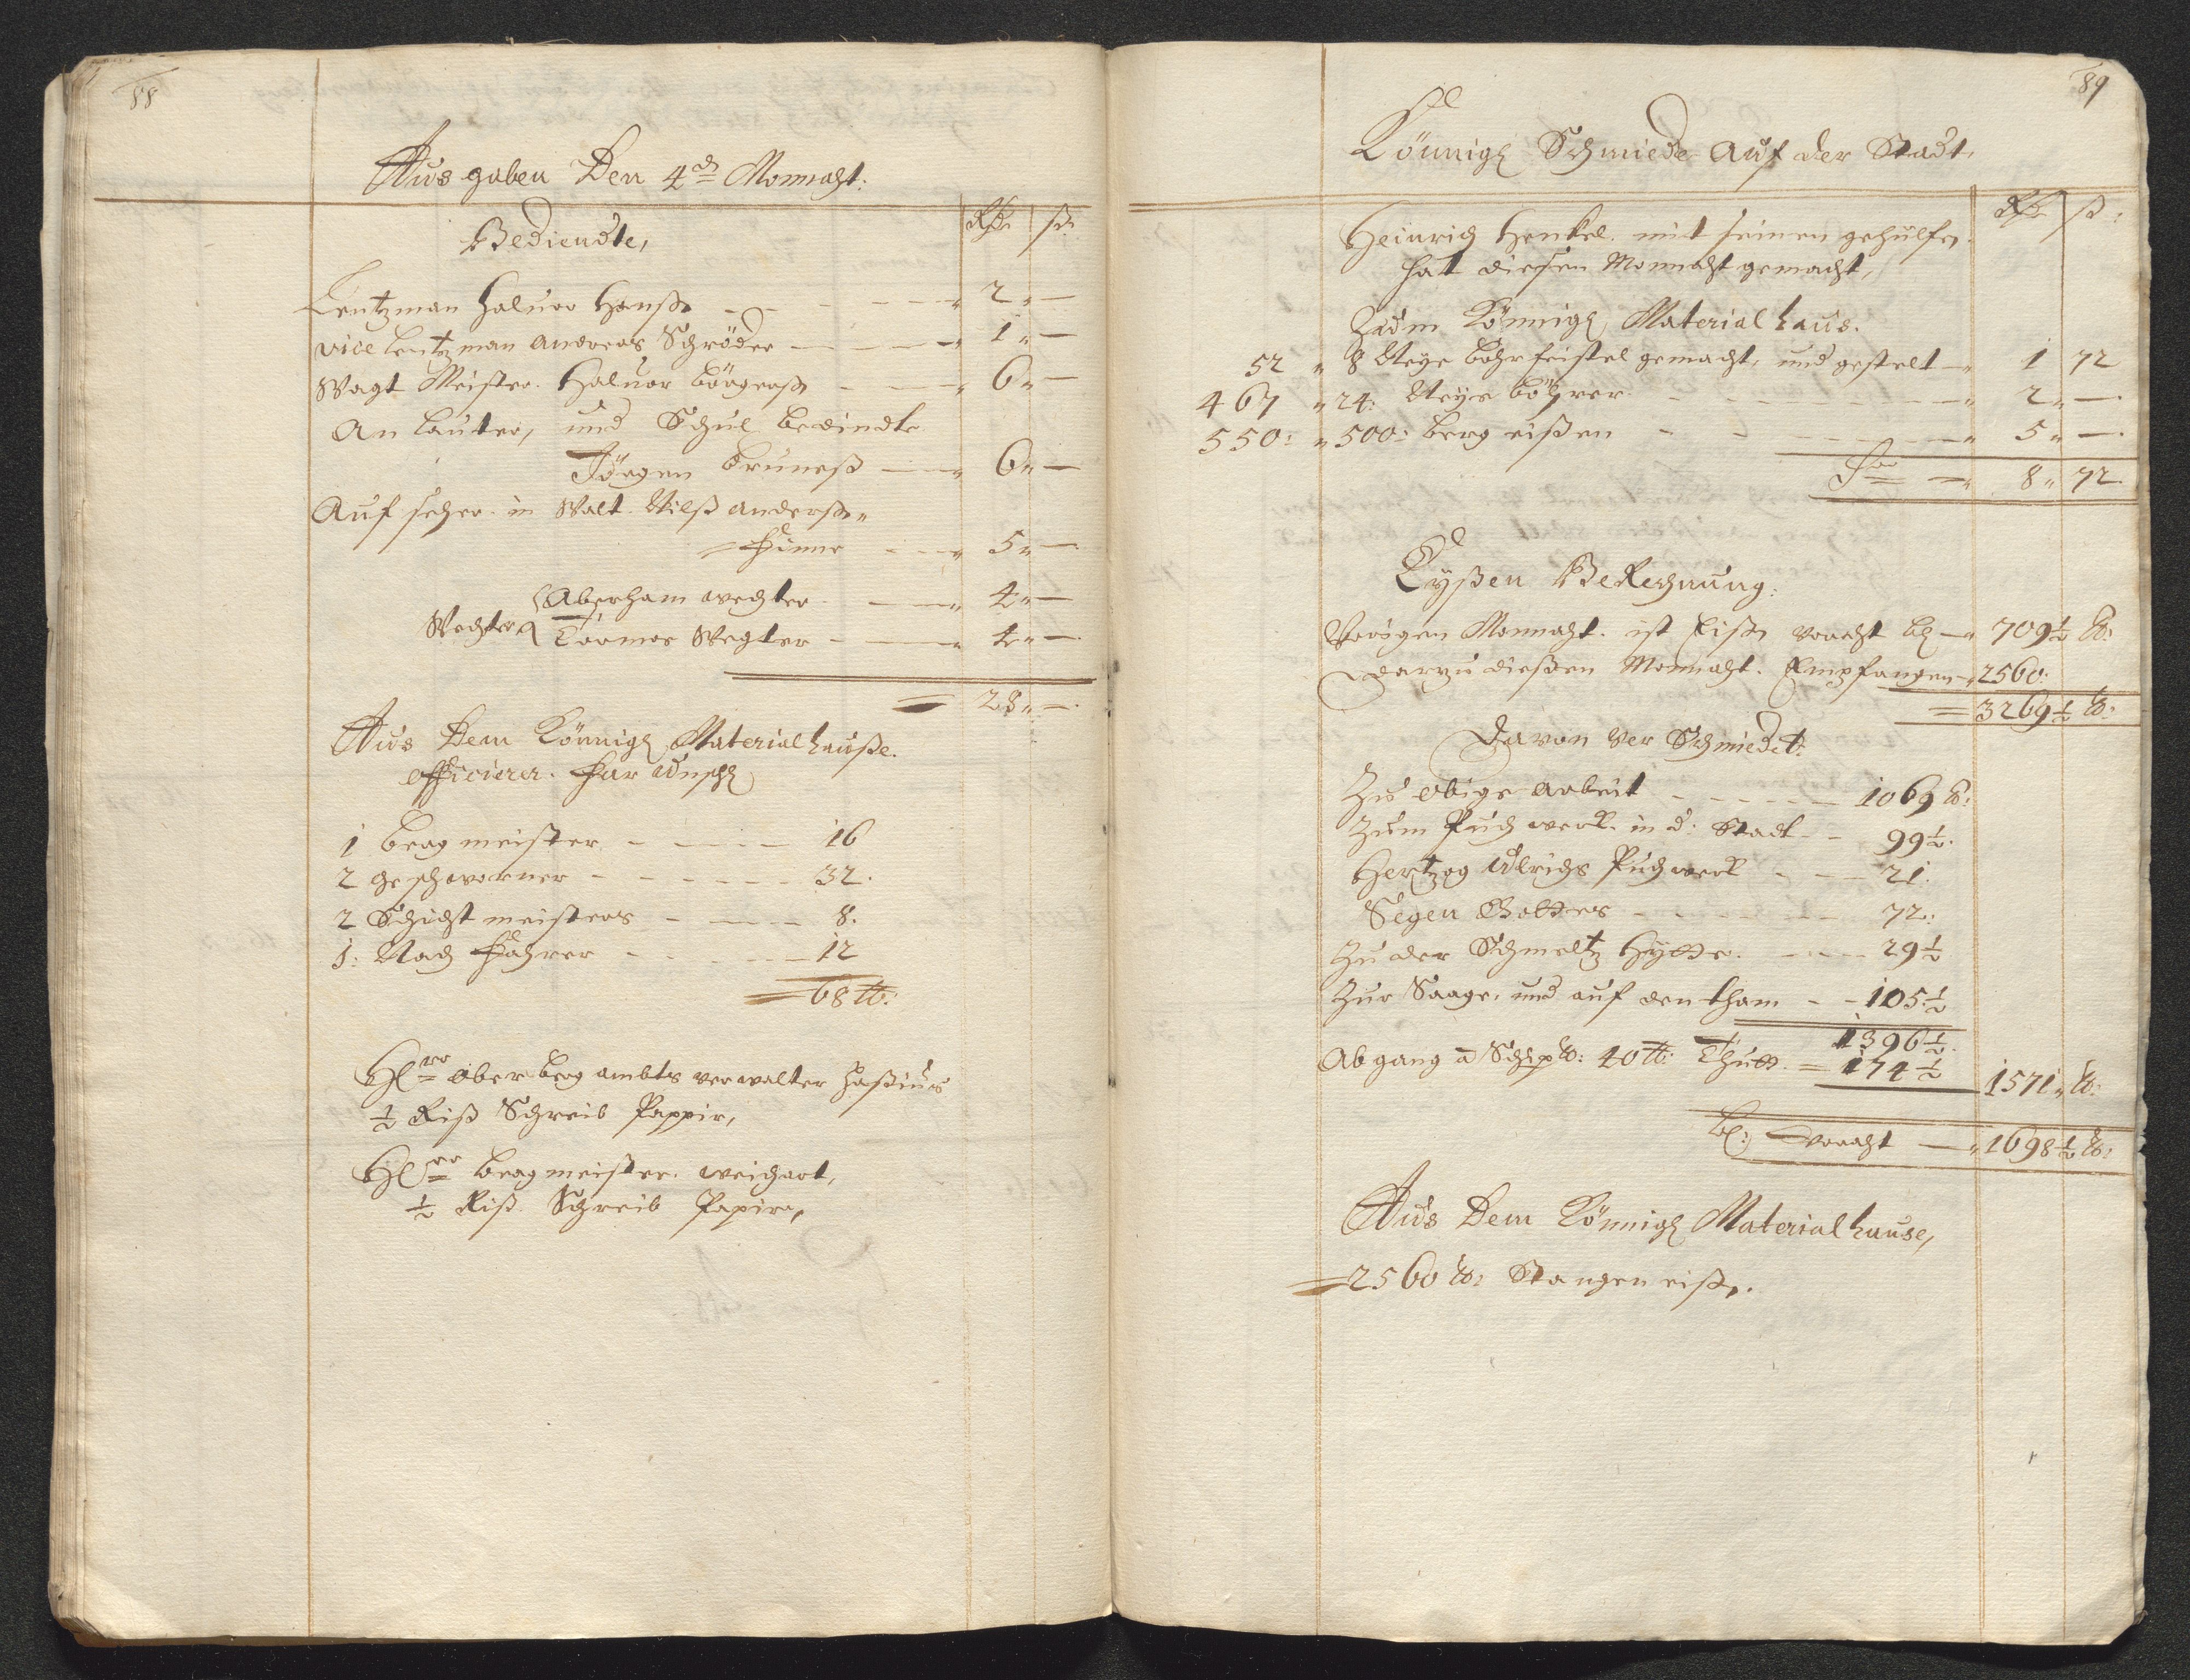 88
Aus gaben Den 4d Monnaht:
Bediendte,
Rd: ß:
Lentzman Haluor Hanßn — 2 „ —
vice Lentzman Andreas Schröder — 1 „ —
Wagt Meister. Haluor Börgerßn — 6 „ —
An Lauter, und Schul bediendte
Jörgen Bruneß — 6 „ —
Auf seher in Walt. Nilß Anderßn „
Finne — 5 „ —
Wechter { Aberham Wechter — 4 „ —
Toomos Wegter — 4 „ —
= 28 „ —
Aus Dem Könnigl Materialhauße.
officierer. Far Unschl
1 Berg meister — 16
2 geschworner — 32.
2 Schicht meisters — 8.
1: Nach Fahrer — 12
= 68 ℔:
Hl rr Ober berg ambts verwalter Haßius
½ Riß Schreib Pappir,
Hl rr Berg meister. Weichart,
½ Riß. Schreib Papir,
89
Könnigl Schmiede Auf der Stadt,
Rd: ß:
Heinrich Henkel. mit seinen gehülfen
hat diesen Monnaht gemacht,
Zudm Könnigl Material haus.
52 „ 8 Neye bohrfeistel gemacht, und gestelt — 1 72
467 „ 24: Neye böhrer — 2 „ —
550: „ 500: berg eißen — 5 „ —
Sa — 8 „ 72
Eyßen BeRechnung:
Vorigen Monnaht. ist Eißn voraht bl — 709½ ℔:
Darzu dießen Monnaht. Empfangen — 2560:
= 3269½ ℔:
Davon Ver Schmiedet:
Zu obige arbeit — 1069 ℔:
Zum Puch werk. in d: Stadt — 99½.
Hertzog Ulrichs Puchwerk — 21.
Segen Gottes — 72:
Zu der Schmeltz Hytte. — 29½
Zur Saage, und auf den tham — 105½
1396½.
Ab gang a Schip℔: 40 ℔: Thutt. = 174½ 1571 „ ℔:
bl: voraht — 1698½ ℔:
Aus Dem Könnigl Material hause,
= 2560 ℔: Stangen eißn.